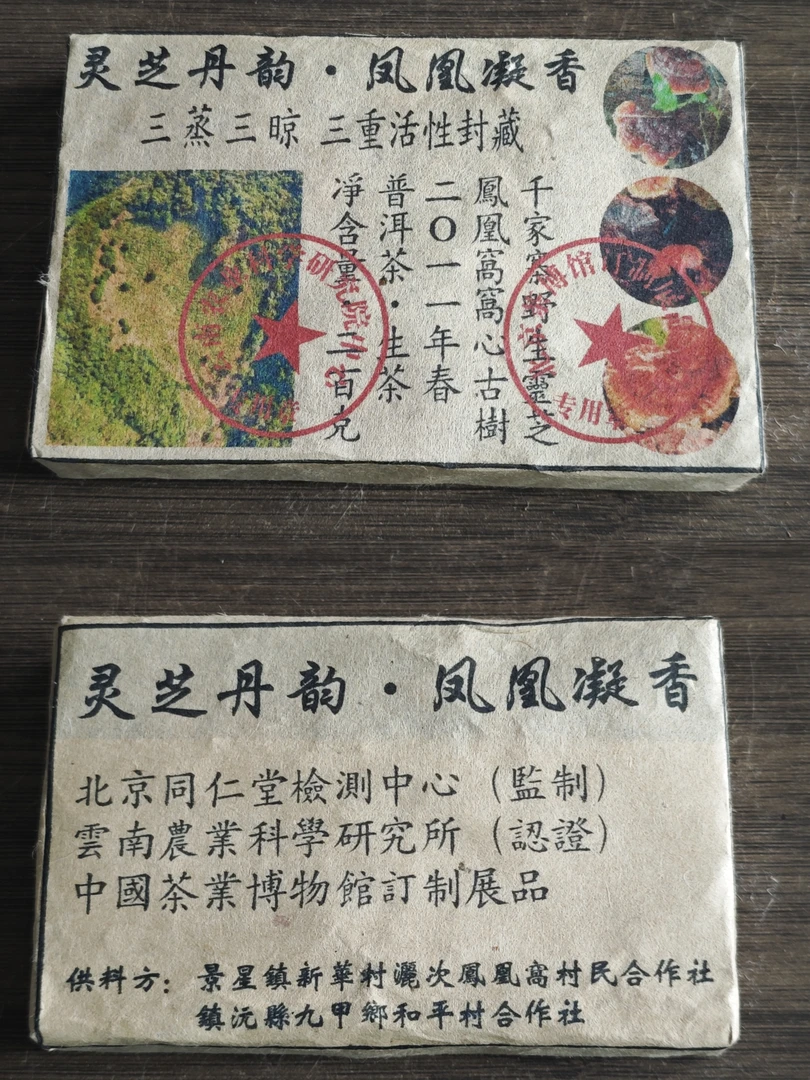 灵芝丹韵·凤凰凝香
三蒸三晾 三重活性封藏
千家寨野生靈芝
鳳凰窩窩心古樹
二〇一一年春
普洱茶·生茶
淨含量·二百克
专用章
灵芝丹韵·凤凰凝香
北京同仁堂檢測中心（監制）
雲南農業科學研究所（認證）
中國茶業博物館訂制展品
供料方：景星鎮新華村灑次鳳凰窩村民合作社
鎮沅縣九甲鄉和平村合作社